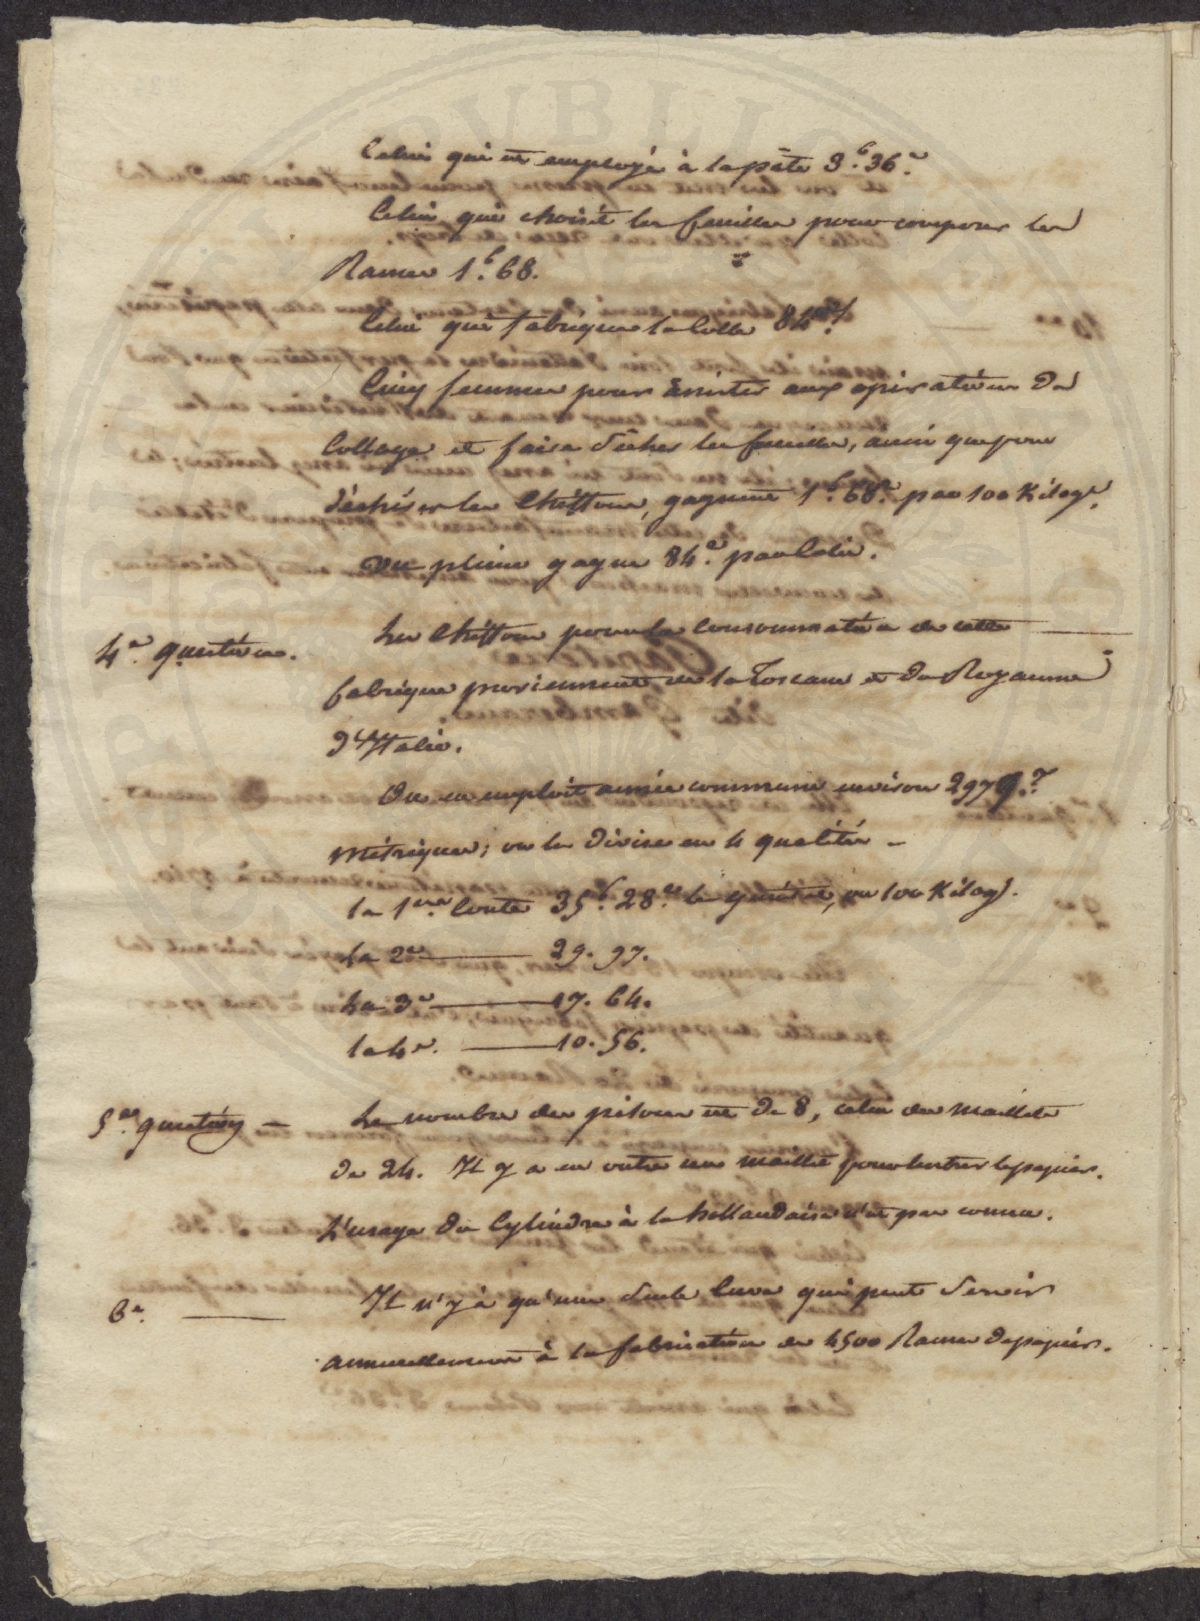 Celui qui est employé à la pâte 3.f 36.c
Celui qui choisit les feuilles pour composer les
Rames 1.f 68.
Celui qui fabrique la Colle 84.c
Cinq femmes pour assister aux opérations du
Collage et faire sécher les feuilles, ainsi que pour
déchirer les Chiffons, gagnent 1.f 68.c par 100 Kilog.
On plieur gagne 84.c par Colis.
4.e question. Les Chiffons pour la Consommation de cette
fabrique proviennent de la Toscane et du Royaume
d'Italie.
On en emploie année commune environ 297 q.x
Métriques; on les divise en 4 qualités -
la 1.ere Coute 35.f 28.c le quintal, ou 100 Kilog.
La 2.e 29. 97.
La 3.e 17. 64.
la 4.e 10. 56.
5.me question - Le nombre des pilons est de 8, celui des Maillets
de 24. Il y a en outre un maillet pour lustrer le papier.
L'usage du Cylindre à la hollandaise n'est pas connu.
6.e Il n'y a qu'une seule Cuve qui peut servir
annuellement à la fabrication de 4500 Rames de papier.